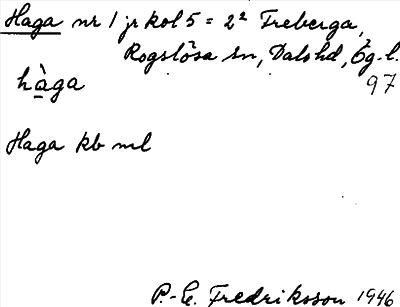 Haga nr 1 jr kol 5 = 2² Freberga,
Rogslösa sn, Dals hd, Ög. l.
hàga 97
Haga kb ml
P.-E. Fredriksson 1946